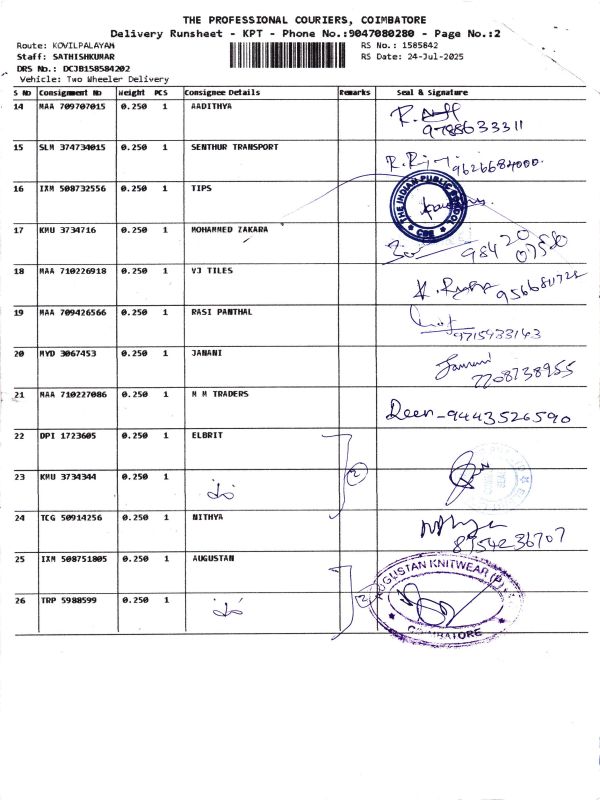 THE PROFESSIONAL COURIERS, COIMBATORE
Delivery Runsheet - KPT - Phone No.:9047080280 - Page No.:2
Route: KOVILPALAYAM RS No.: 1585842
Staff: SATHISHKUMAR RS Date: 24-Jul-2025
DRS No.: DCJB158584202
Vehicle: Two Wheeler Delivery
S No Consignment No Weight PCS Consignee Details Remarks Seal & Signature
14 MAA 709707015 0.250 1 AADITHYA
9788633311
15 SLM 374734015 0.250 1 SENTHUR TRANSPORT
9626684000.
16 IXM 508732556 0.250 1 TIPS
THE INDIAN PUBLIC SCHOOL
CBE
17 KMU 3734716 0.250 1 MOHAMMED ZAKARA
98420
07550
18 MAA 710226918 0.250 1 VJ TILES
19 MAA 709426566 0.250 1 RASI PANTHAL
9715433143
20 MYD 3067453 0.250 1 JANANI
Janani
7708738955
21 MAA 710227086 0.250 1 M M TRADERS
Deen-9443526590
22 DPI 1723605 0.250 1 ELBRIT
2
23 KMU 3734344 0.250 1
24 TCG 50914256 0.250 1 NITHYA
Nithya
8954236707
25 IXM 508751805 0.250 1 AUGUSTAN
2
AUGUSTAN KNITWEAR (P)
26 TRP 5988599 0.250 1
COIMBATORE